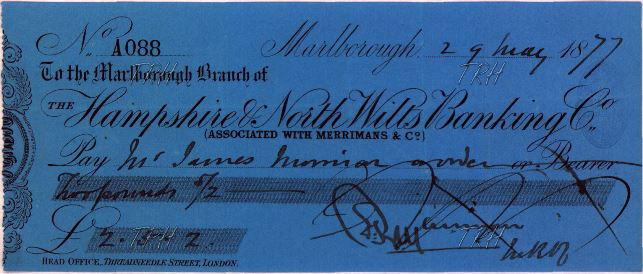 No. A088 Marlborough. 29 May 1877
To the Marlborough Branch of
THE Hampshire & North Wilts Banking Co.
(ASSOCIATED WITH MERRIMANS & Co.)
Pay Mr James or order or Bearer
Two pounds 5/2
£ 2 . 2.
HEAD OFFICE, THREADNEEDLE STREET, LONDON.